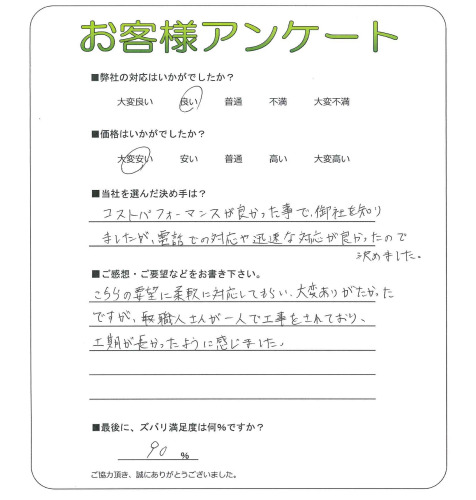 お客様アンケート
■弊社の対応はいかがでしたか？
大変良い　良い　普通　不満　大変不満
■価格はいかがでしたか？
大変安い　安い　普通　高い　大変高い
■当社を選んだ決め手は？
コストパフォーマンスが良かった事で、御社を知り
ましたが、電話での対応や迅速な対応が良かったので
決めました。
■ご感想・ご要望などをお書き下さい。
こちらの要望に柔軟に対応してもらい、大変ありがたかった
ですが、職人さんが一人で工事をされており、
工期が長かったように感じました。
■最後に、ズバリ満足度は何％ですか？
90 ％
ご協力頂き、誠にありがとうございました。